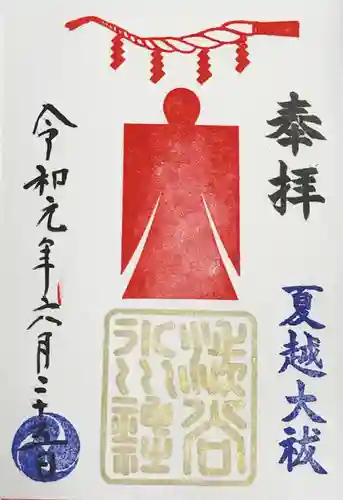 奉拝
夏越大祓
渋谷
氷川神社
令和元年六月二十五日